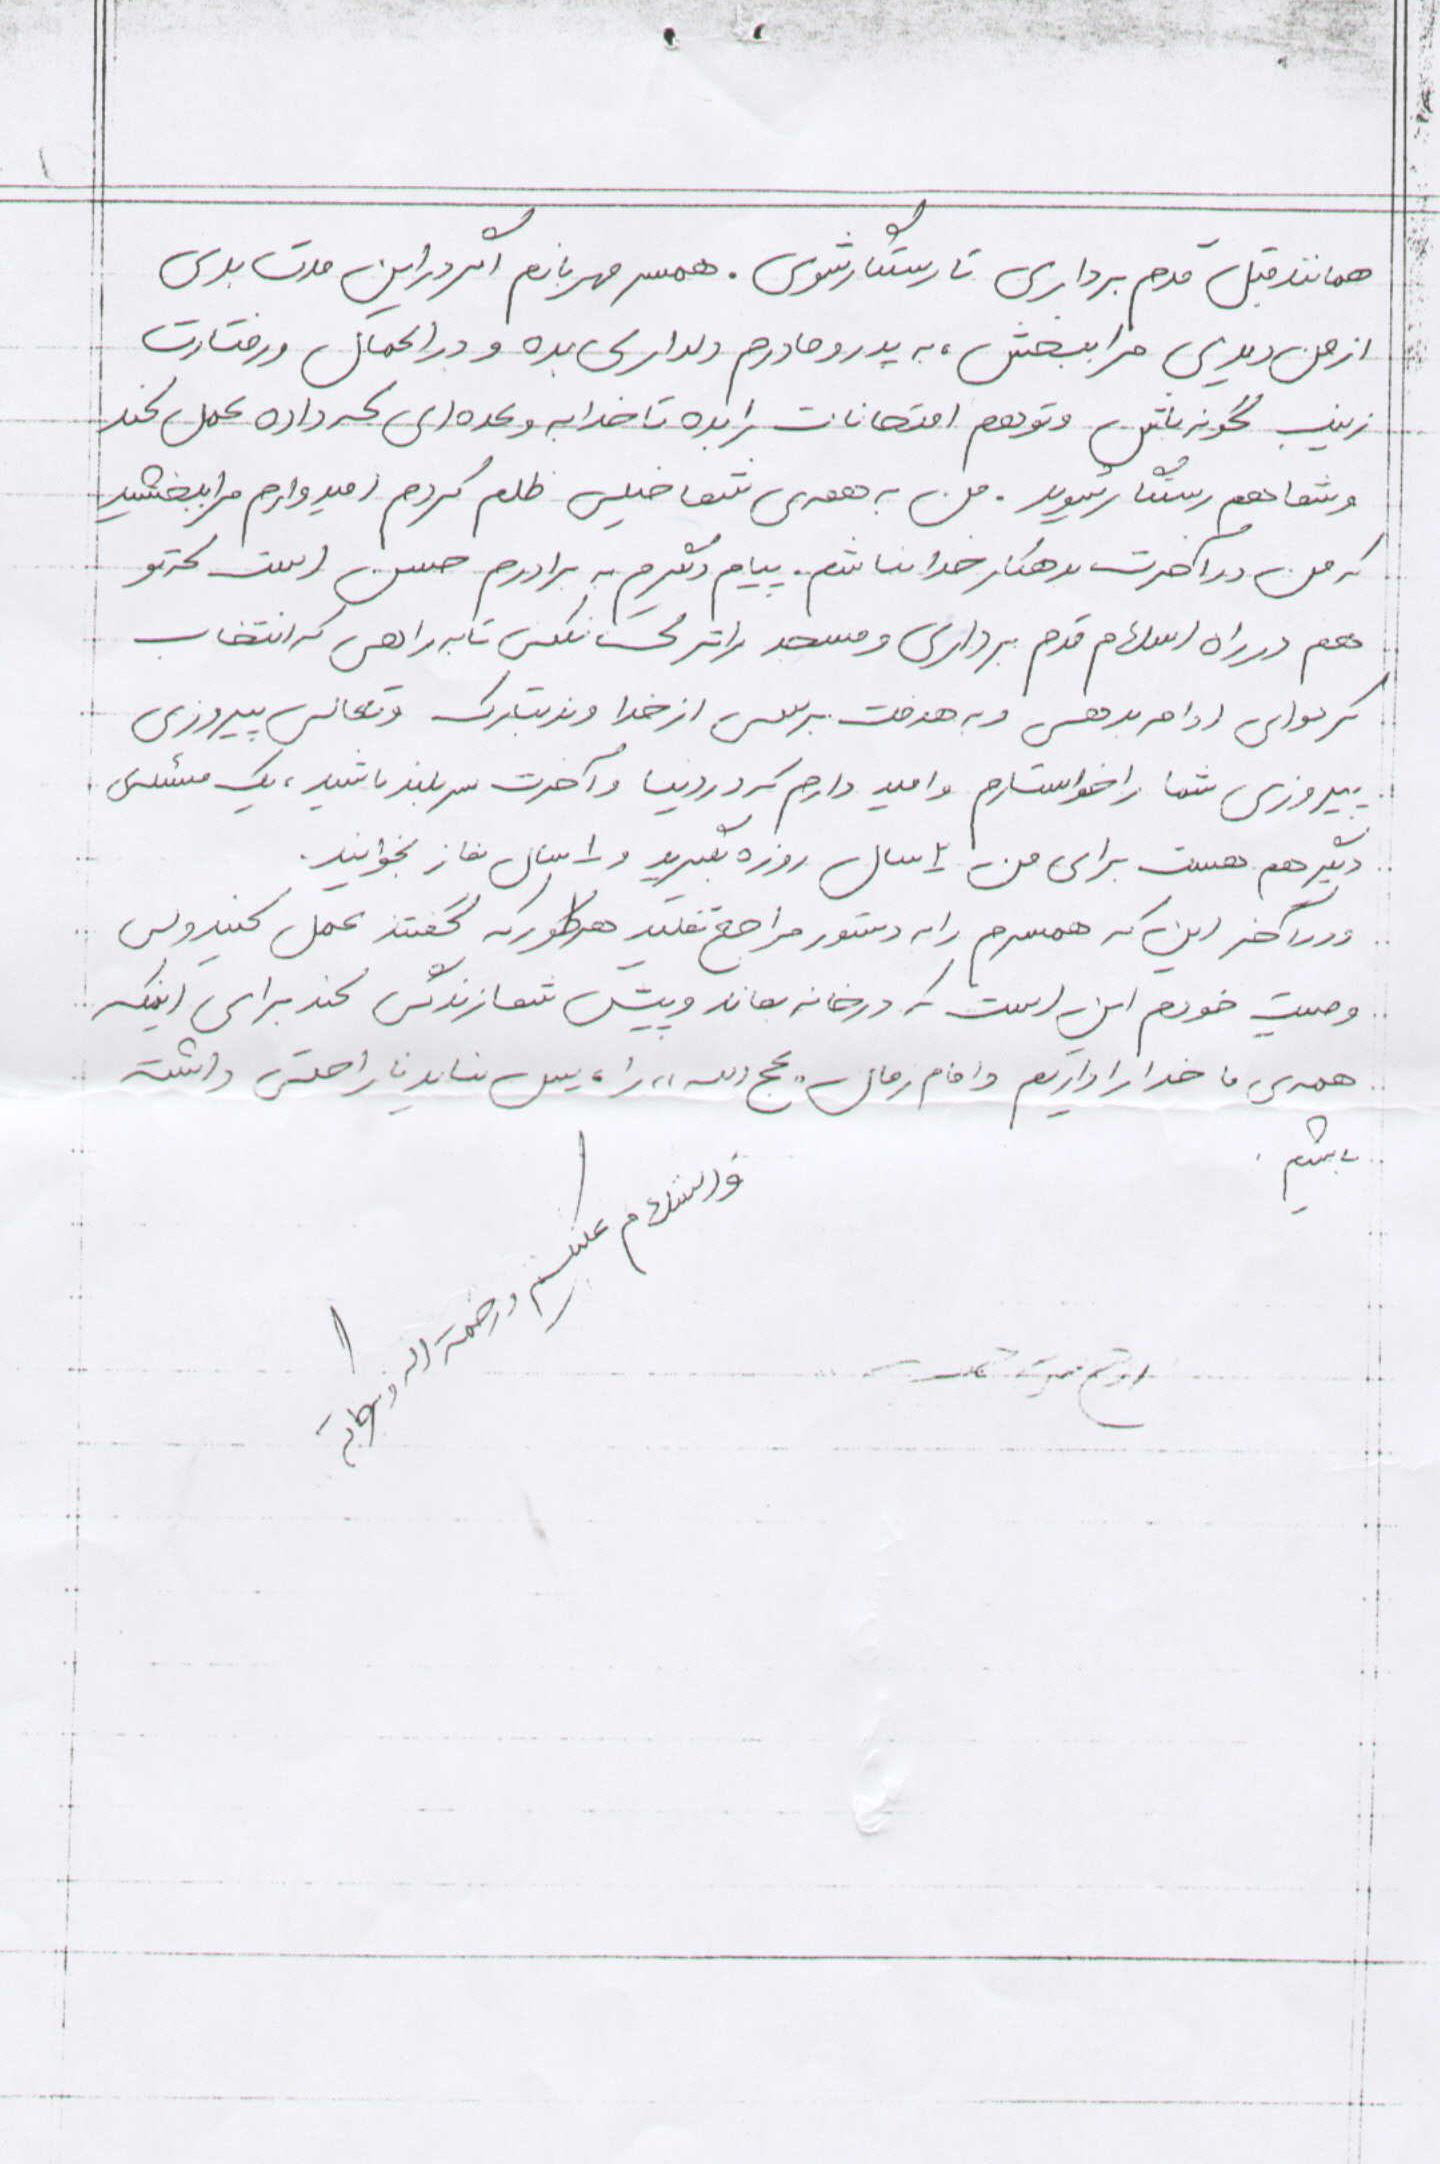 همانند قبل قدم برداری تا رستگار شوی . همسر مهربانم اگر در این مدت بدی
از من دیدی مرا ببخش ، به پدر و مادرم دلداری بده و در اعمال و رفتارت
زینب گونه باش و تو هم امتحانات را بده تا خدا به وعده‌ای که داده عمل کند
و شما هم رستگار شوید . من به همه‌ی شما خیلی ظلم کردم امیدوارم مرا ببخشید
که من در آخرت بدهکار خدا نباشم . پیام دیگرم به برادرم حسن است که تو
هم در راه اسلام قدم برداری و مسجد را ترک نکنی تا به راهی که انتخاب
کرده‌ای ادامه بدهی و به هدفت برسی از خداوند تبارک و تعالی پیروزی
پیروزی شما را خواستارم و امید دارم که در دنیا و آخرت سربلند باشید ، یک مسئله‌ی
دیگر هم هست برای من ۱ سال روزه بگیرید و ۱ سال نماز بخوانید .
و در آخر این که همسرم را به دستور مراجع تقلید هر طور که گفتند عمل کنید ولی
وصیت خودم این است که در خانه بماند و پیش شما زندگی کند برای اینکه
همه‌ی ما خدا را داریم و امام زمان «عج الله» را ، پس نباید ناراحتی داشته
باشیم .
والسلام علیکم و رحمة الله و برکاته